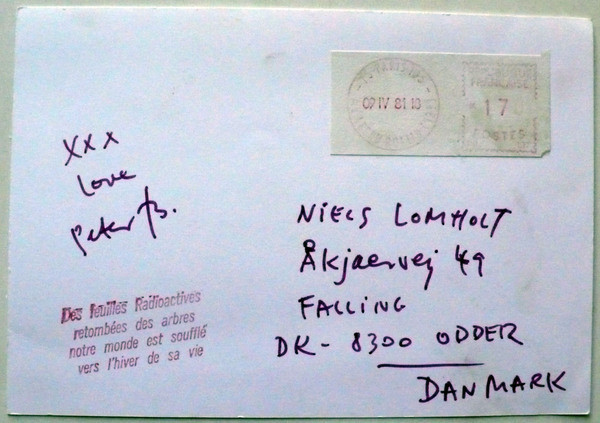 XXX
Love
Peter B.
Des feuilles Radioactives
retombées des arbres
notre monde est soufflé
vers l'hiver de sa vie
07 IV 81 18
17
POSTES
NIELS LOMHOLT
Åkjaervej 49
FALLING
DK - 8300 ODDER
DANMARK